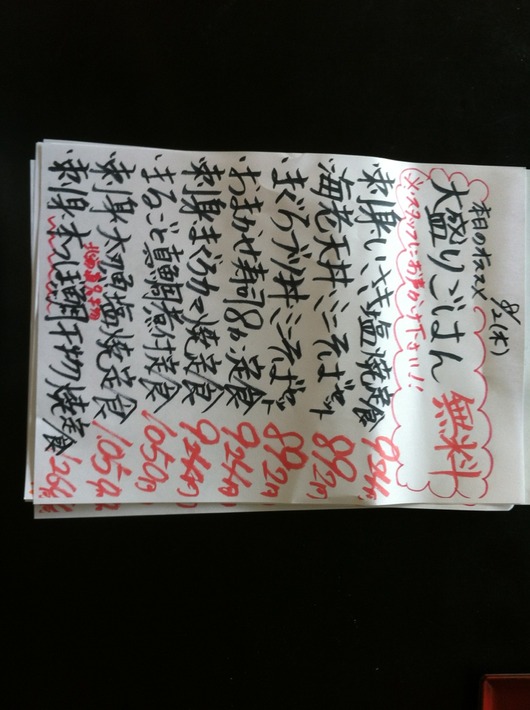 8/2(木)
本日のオススメ
大盛りごはん 無料
※スタッフにお声かけ下さい!!
・刺身、いさき塩焼定食 924円
・海老天丼ミニそばセット 892円
・まぐろブツ丼ミニそばセット 892円
・おまかせ寿司8カン定食 924円
・刺身まぐろカマ焼定食 924円
・まるごと真鯛煮付定食 1050円
・刺身大西塩焼定食 105
・刺身・ほっけ干物焼定食 126